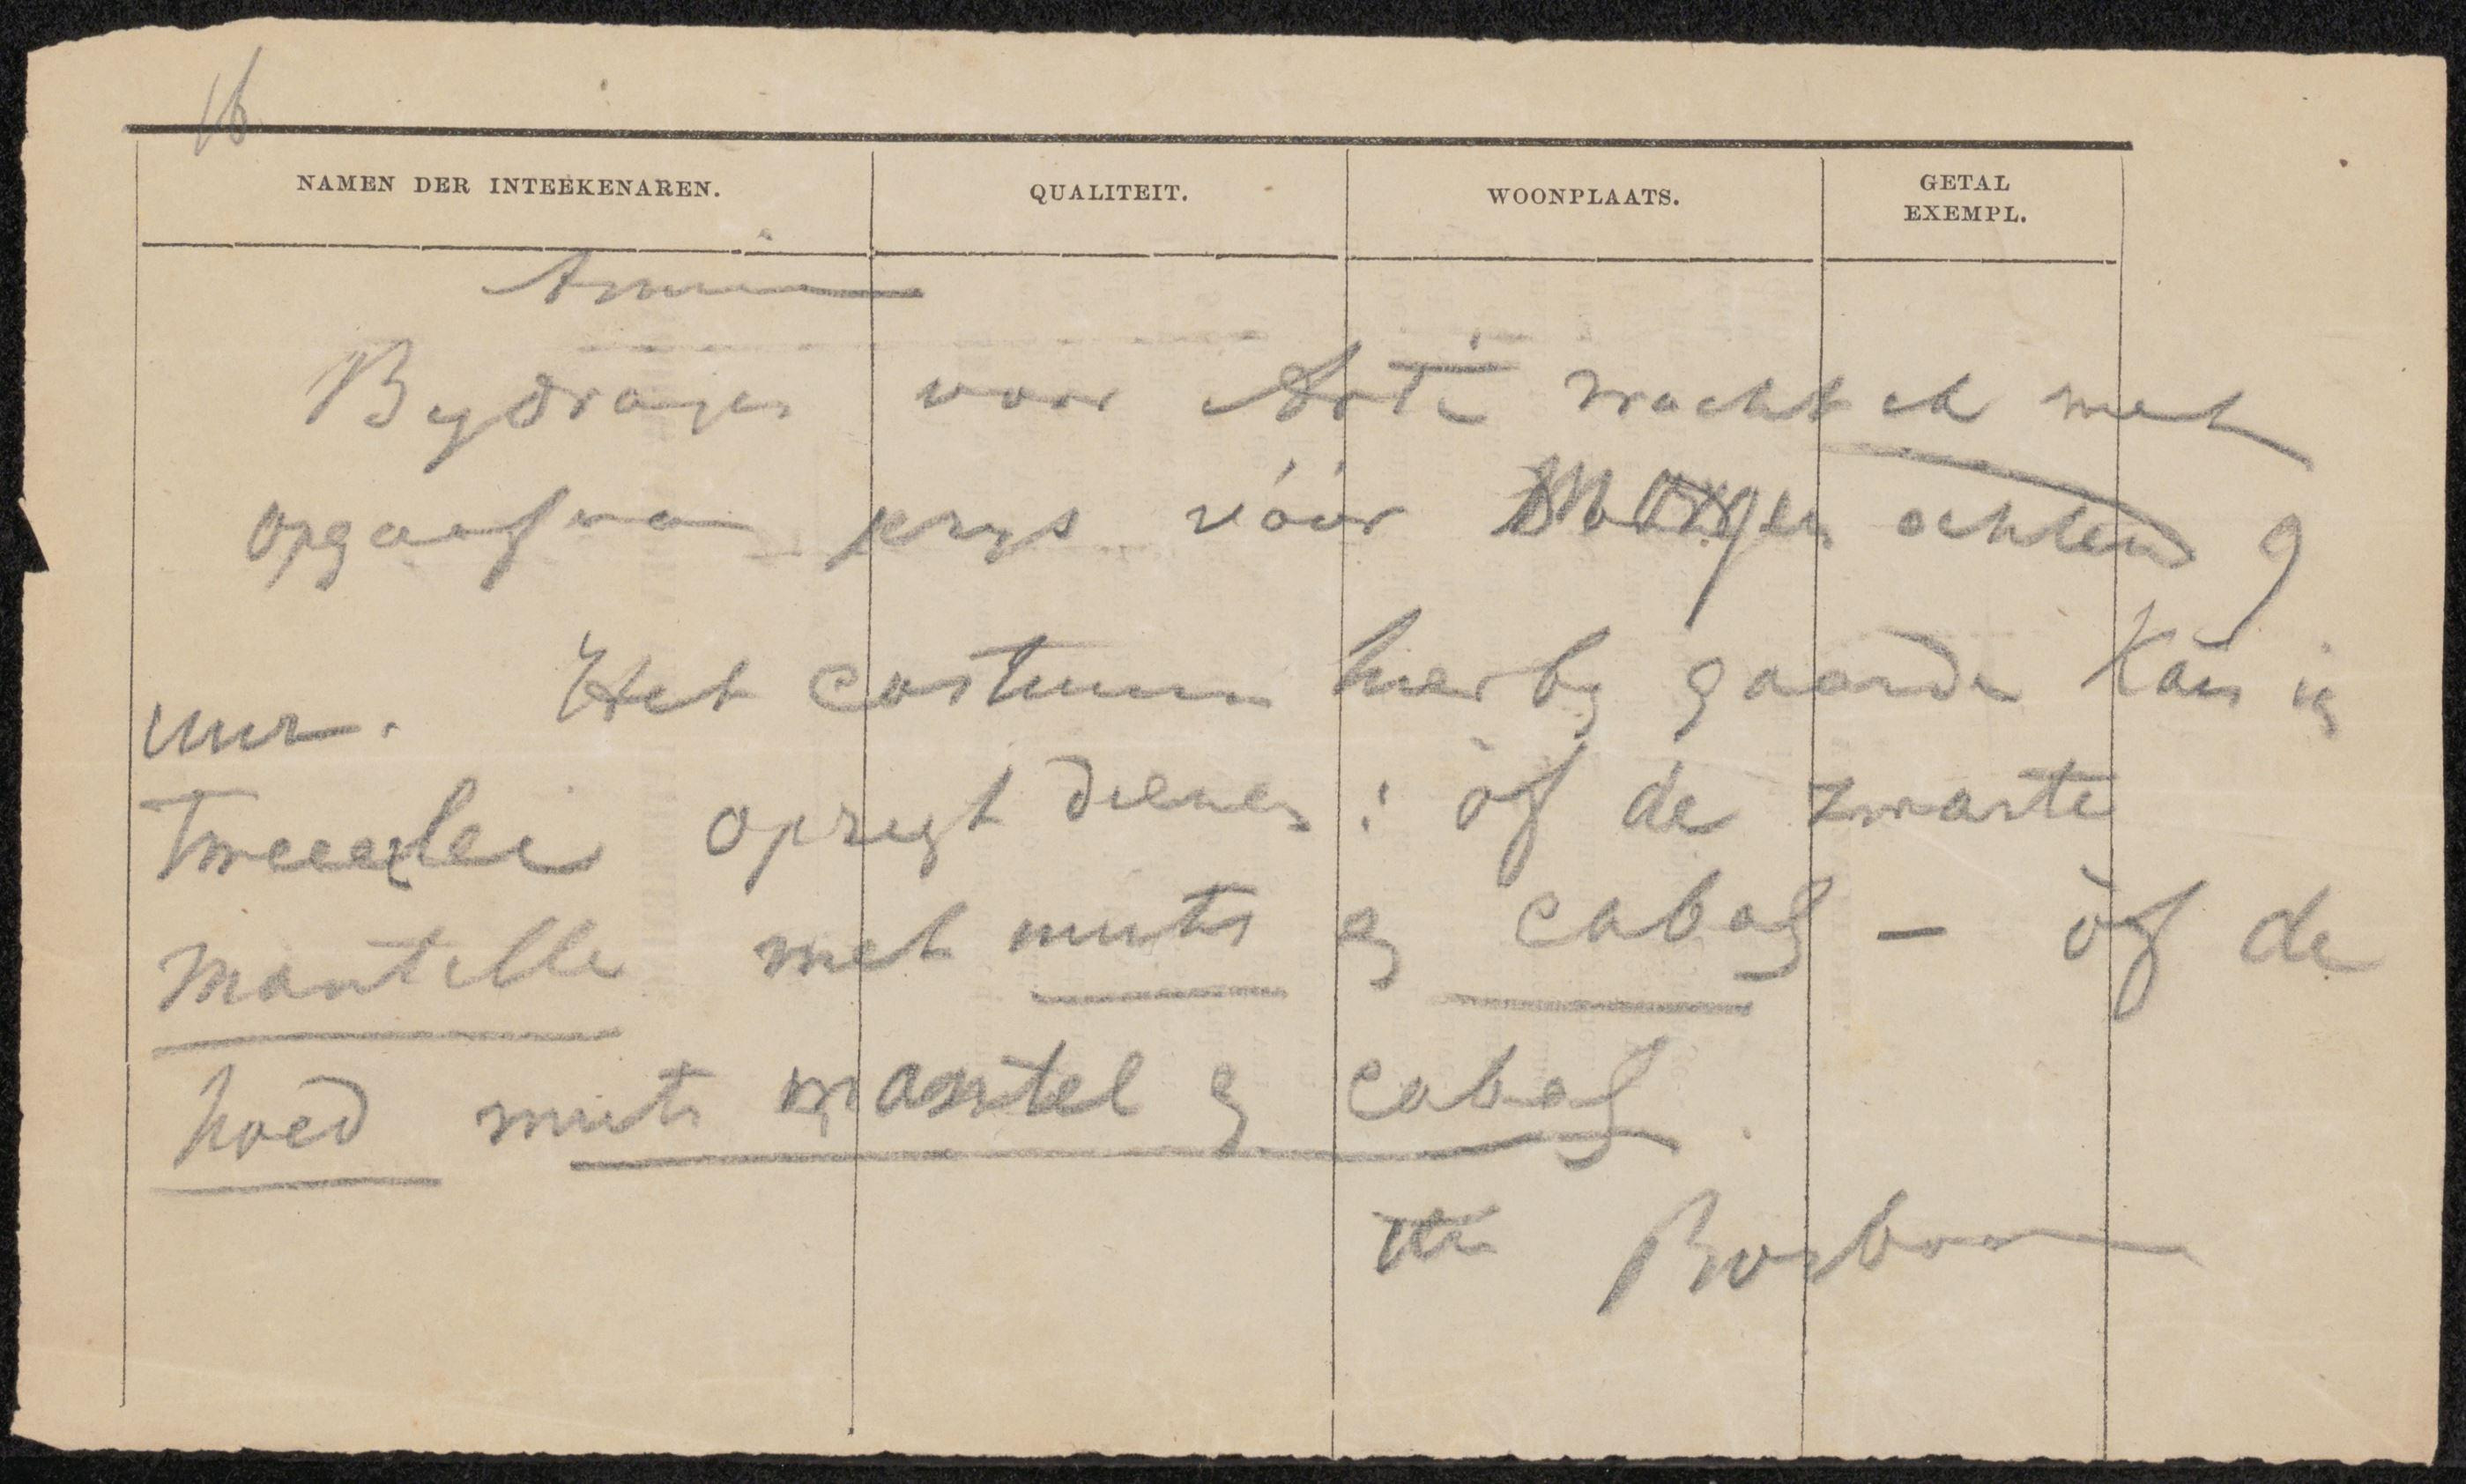 16
NAMEN DER INTEEKENAREN. QUALITEIT. WOONPLAATS. GETAL EXEMPL.
Amice
Bydrages voor Arti wacht ik met
opgaaf van prys vóór morgen ochtend 9
uur. Het costuum hierby gaande kan in
tweeërlei opzigt dienen: òf de zwarte
mantille met muts en cabas – òf de
hoed muts mantel en cabas.
tt Bosboom